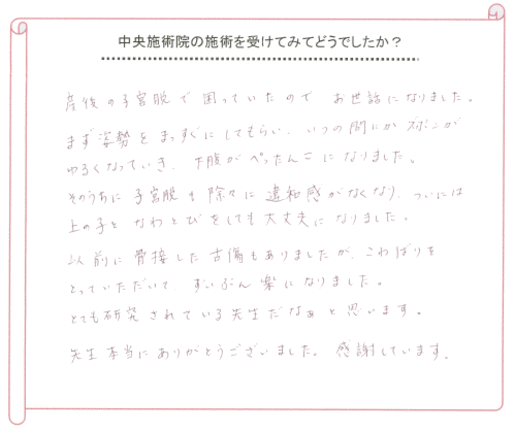 中央施術院の施術を受けてみてどうでしたか？
産後の子宮脱で困っていたので お世話になりました。
まず姿勢をまっすぐにしてもらい、いつの間にかズボンが
ゆるくなっていき、下腹がぺったんこになりました。
そのうちに子宮脱も除々に違和感がなくなり、ついには
上の子となわとびをしても大丈夫になりました。
以前に骨接した古傷もありましたが、こわばりを
とっていただいて、ずいぶん楽になりました。
とても研究されている先生だなぁと思います。
先生本当にありがとうございました。感謝しています。